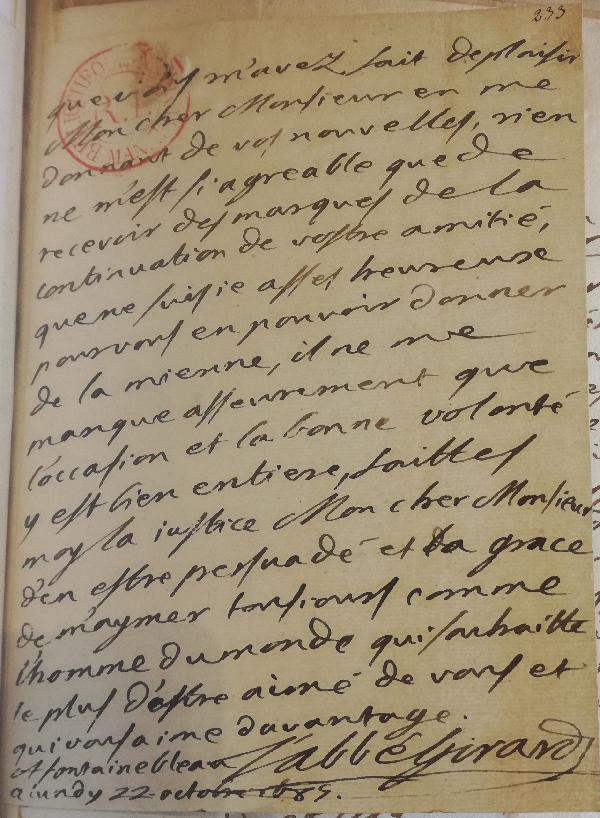 233
que vous m'avez fait de plaisir
Mon cher Monsieur en me
donnant de vos nouvelles, rien
ne m'est si agreable que de
recevoir des marques de la
continuation de vostre amitié,
que ne suis ie asses heureuse
pour vous en pouvoir donner
de la mienne, il ne me
manque asseurement que
l'occasion et la bonne volonté
y est bien entiere, faittes
moy la iustice Mon cher Monsieur
d'en estre persuadé et la grace
de m'aymer tousiours comme
l'homme du monde qui souhaitte
le plus d'estre aimé de vous et
qui vous aime davantage.
a fontainebleau L'abbé Girard
a lundy 22 octobre 1685.